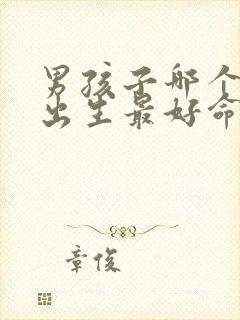 男孩子哪个
出生最好命
章俊